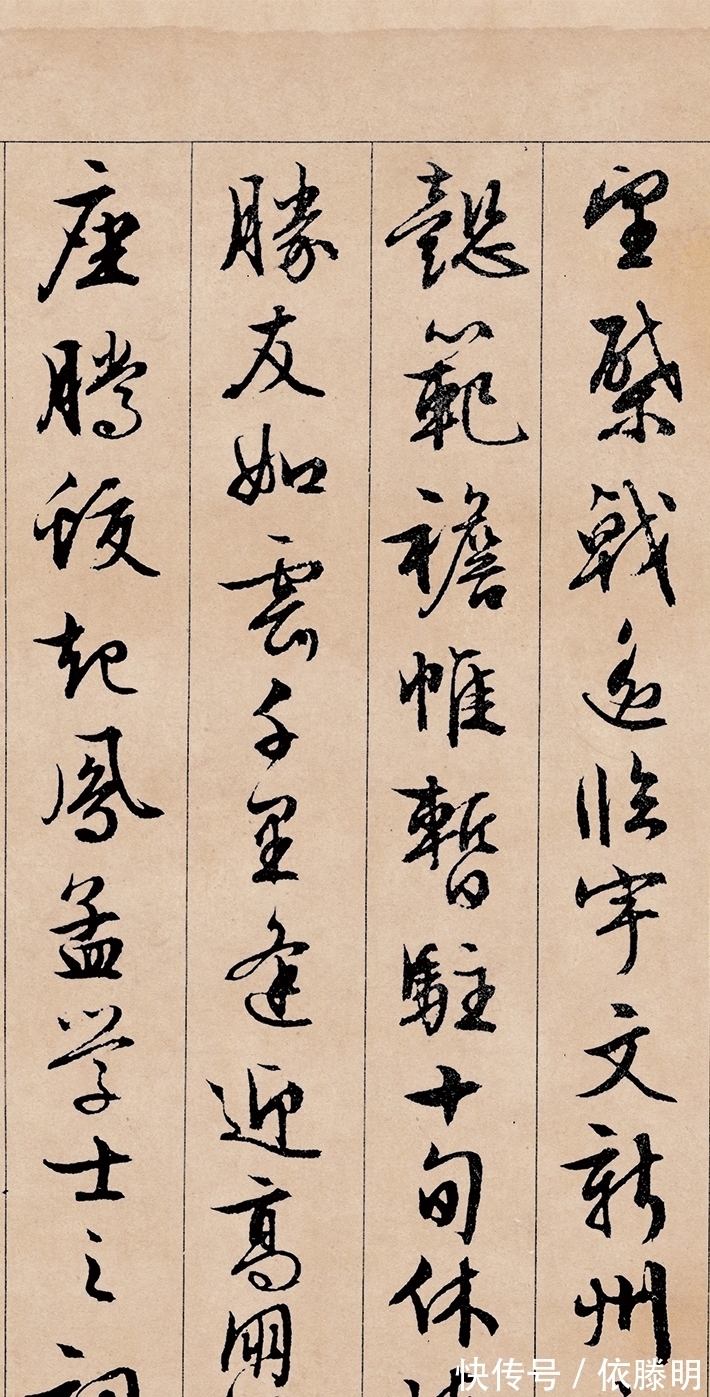 望棨戟遙临宇文新州
懿範襜帷暫駐十旬休
勝友如雲千里逢迎高朋
座腾蛟起鳳孟学士之詞
快传号 / 依滕明